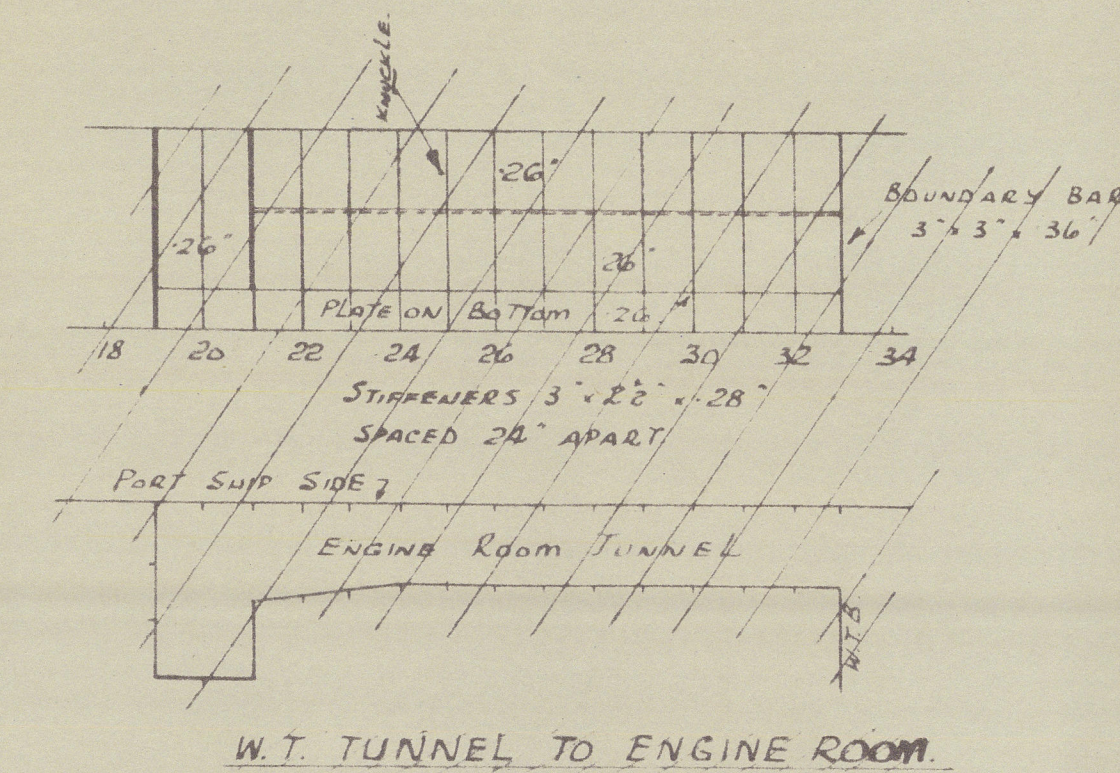 KNUCKLE.
.26"
BOUNDARY BAR
3" x 3" x .36"
.26"
.26"
PLATE ON BOTTOM .26"
18 20 22 24 26 28 30 32 34
STIFFENERS 3" x 2½" x .28"
SPACED 24" APART
PORT SHIP SIDE
ENGINE ROOM TUNNEL
W.T.B.
W.T. TUNNEL TO ENGINE ROOM.